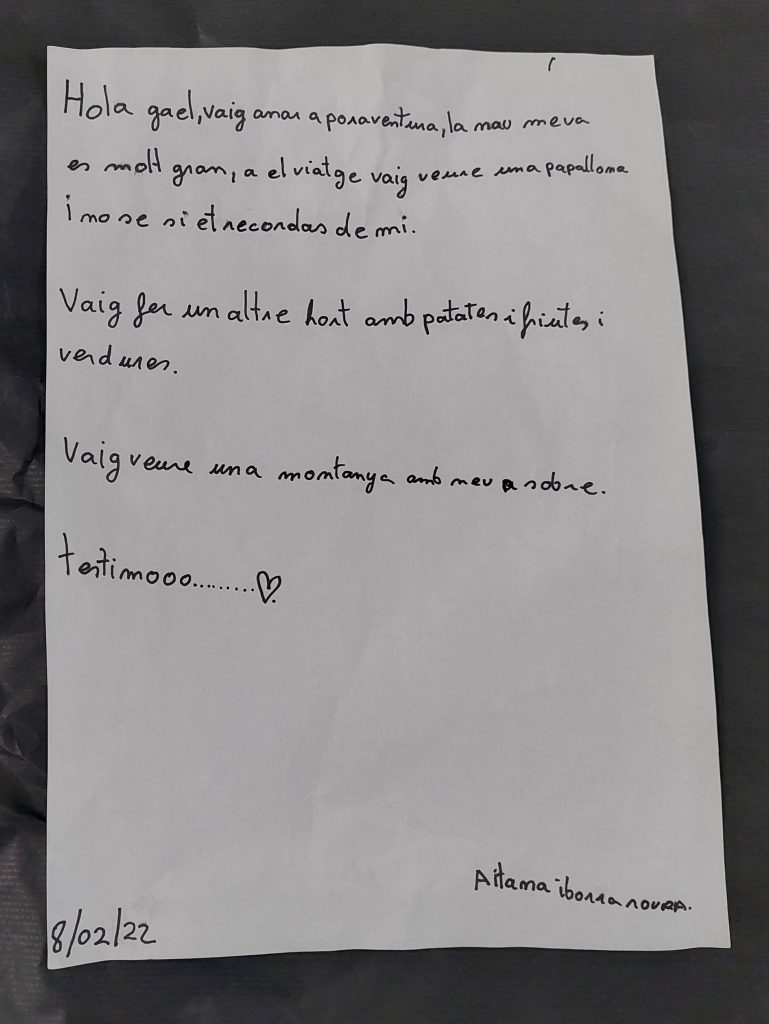 Hola gael, vaig anar a poraventura, la nau meva
es molt gran, a el viatge vaig veure una papallona
i no se si et recordas de mi.
Vaig fer un altre hort amb patates i friutes i
verdures.
Vaig veure una montanya amb neu a sobre.
testimooo.........♡
Aitana iborra roura.
8/02/22